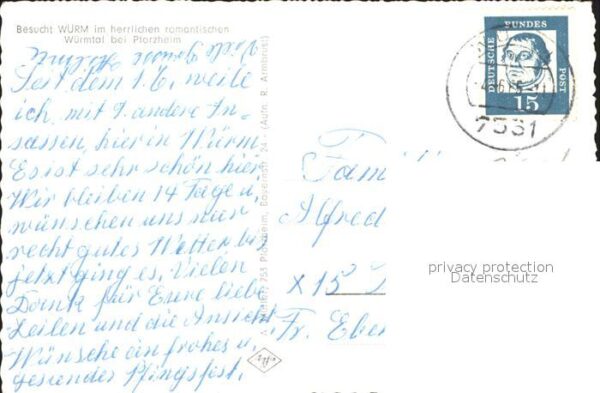 Besucht WÜRM im herrlichen romantischen
Würmtal bei Pforzheim
Seit dem 1.6. weile
ich, mit 9. andere In-
sassen, hier in Würm
Es ist sehr schön hier
Wir bleiben 14 Tage u.
wünschen uns nur
recht gutes Wetter bis
jetzt ging es, Vielen
Dank für Eure liebe
Zeilen und die Ansicht
Wünsche ein frohes u.
gesundes Pfingstfest.
DEUTSCHE BUNDES POST
15
7531
Familie
Alfred
x 15
Fr. Eber
privacy protection
Datenschutz